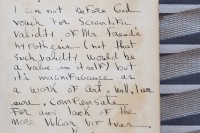 I can not before God
vouch for Scientific
Validity of Mr Freud's
hypothesis (not that
such validity would be
a value in itself) but
its magnificence as
a work of Art, will, I am
sure, compensate
For any lack of the
more Vulgar virtues